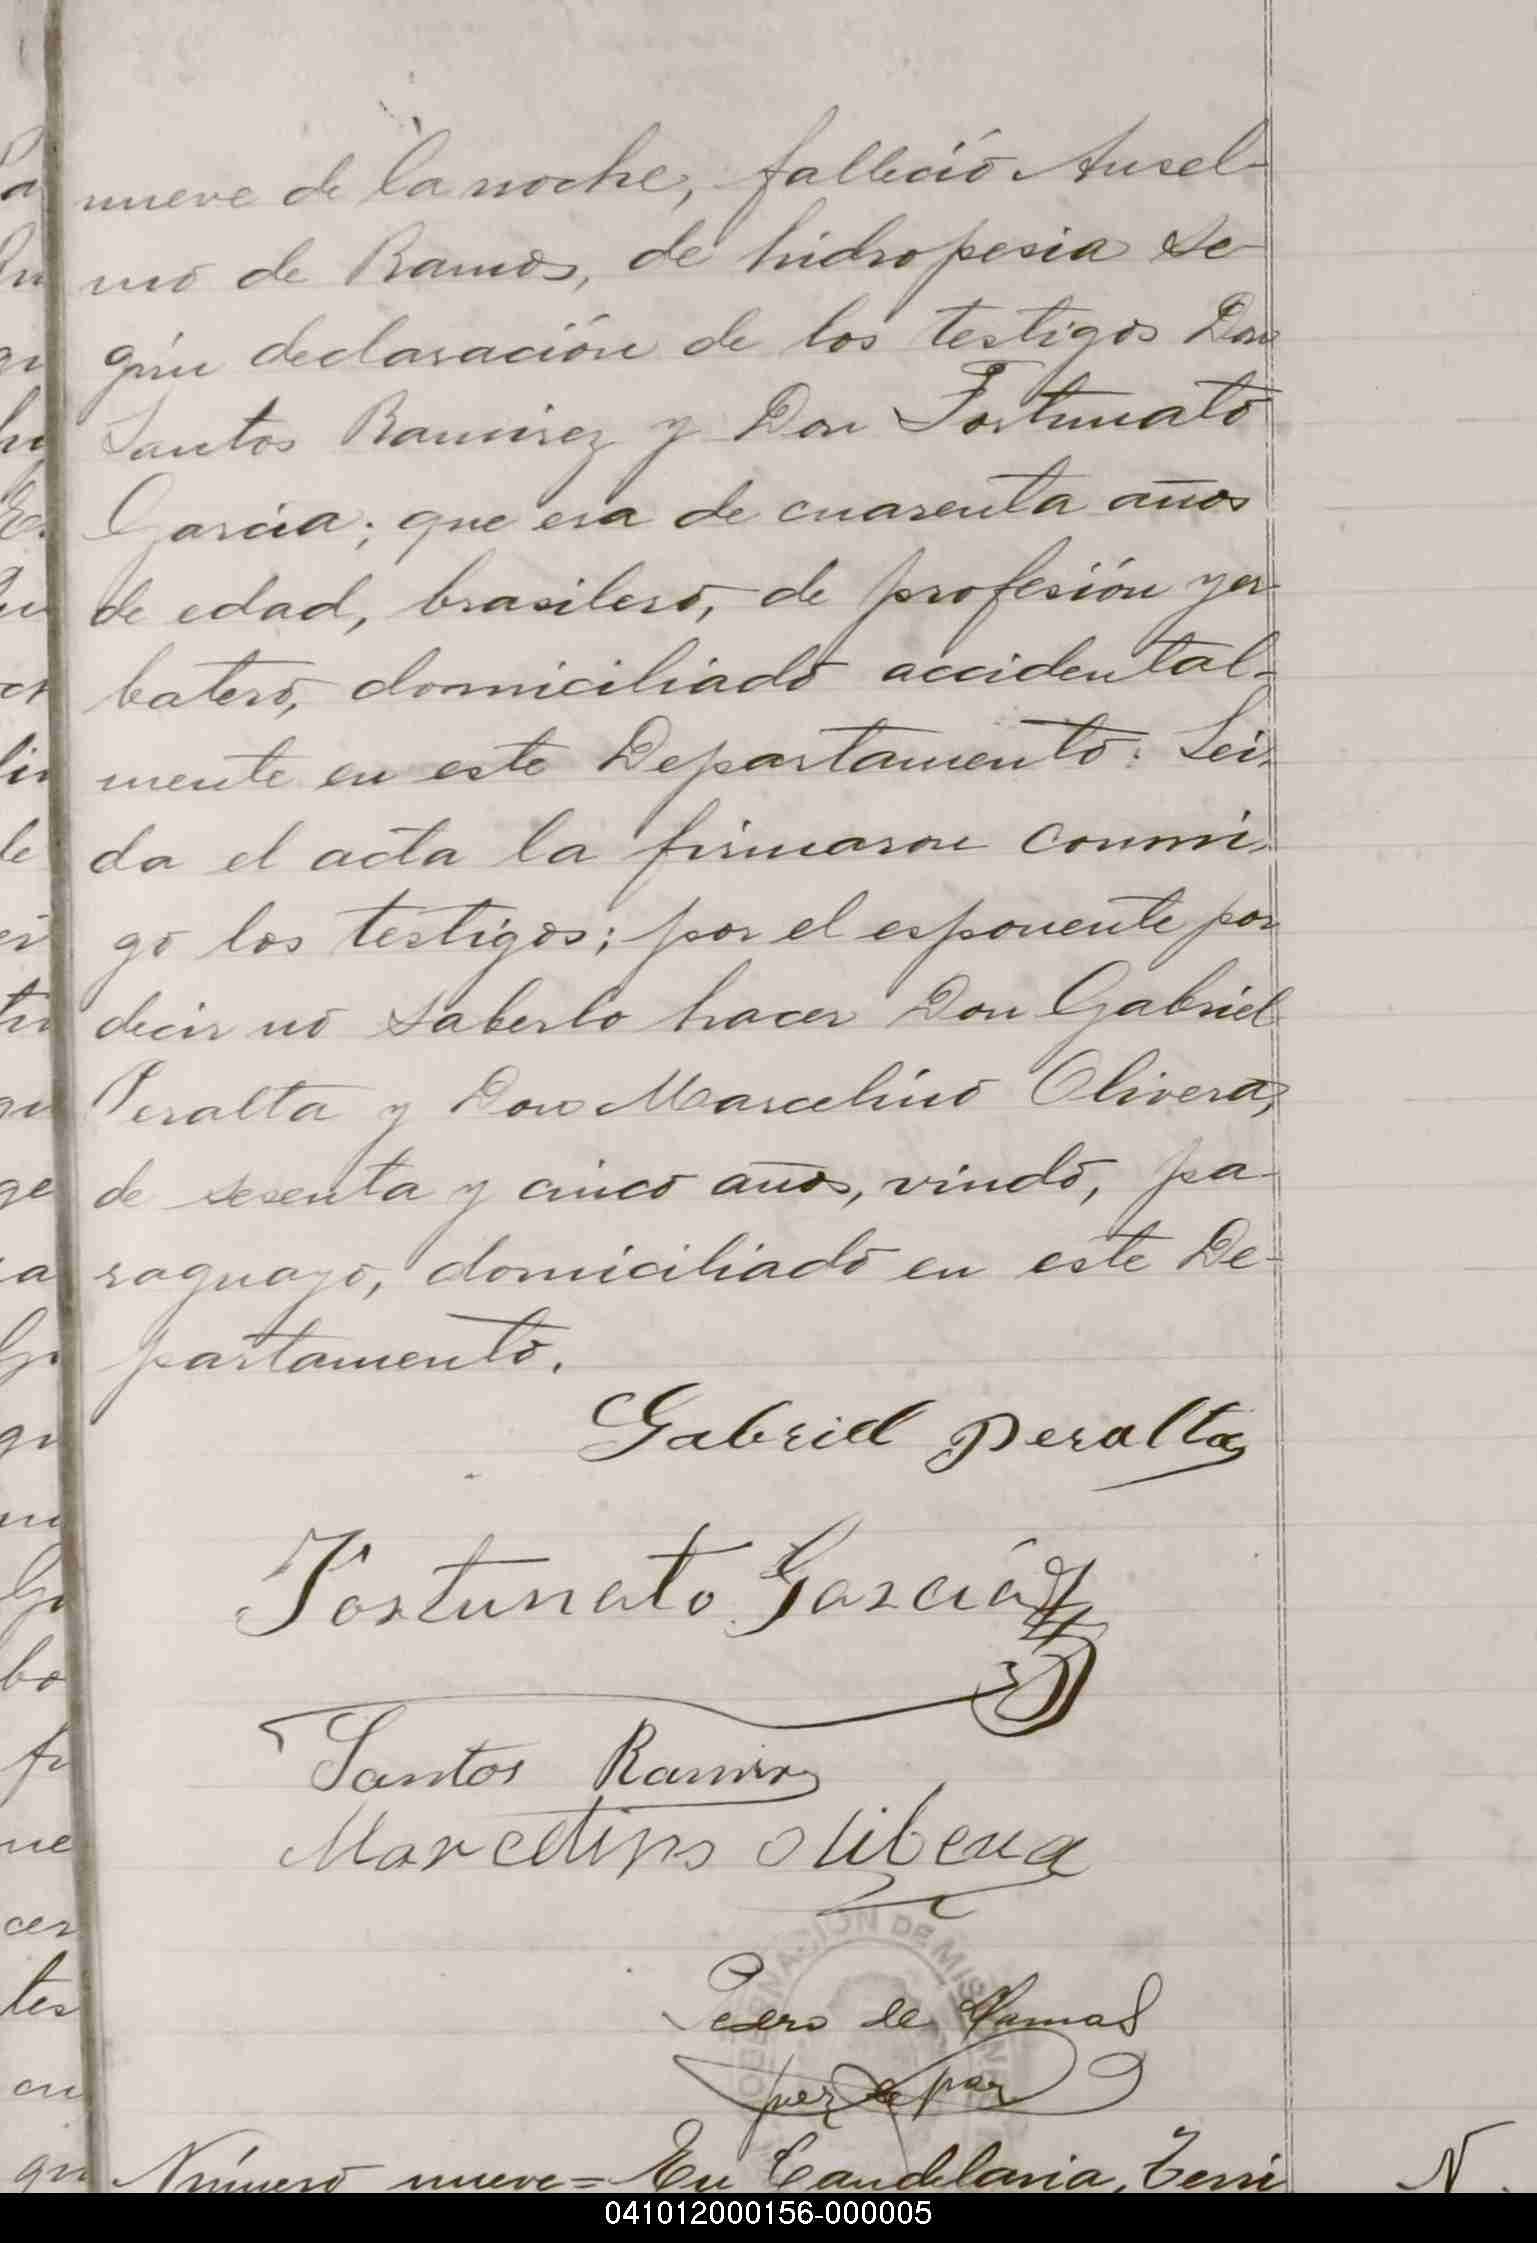 nueve de la noche, falleció Ansel-
mo de Ramos, de hidropesia se-
gún declaración de los testigos Don
Santos Ramirez y Don Fortunato
Garcia; que era de cuarenta años
de edad, brasilero, de profesión yer-
batero, domiciliado accidental-
mente en este Departamento: Lei-
da el acta la firmaron conmi-
go los testigos; por el esponente por
decir no saberlo hacer Don Gabriel
Peralta y Don Marcelino Olivera,
de sesenta y cinco años, viudo, pa-
raguayo, domiciliado en este De-
partamento.
Gabriel Peralta
Fortunato García
Santos Ramirez
Marcelino olibera
GOBERNACION DE MISIONES
Pedro de
juez de paz
Número nueve = En Candelaria, Terri
N
041012000156-000005